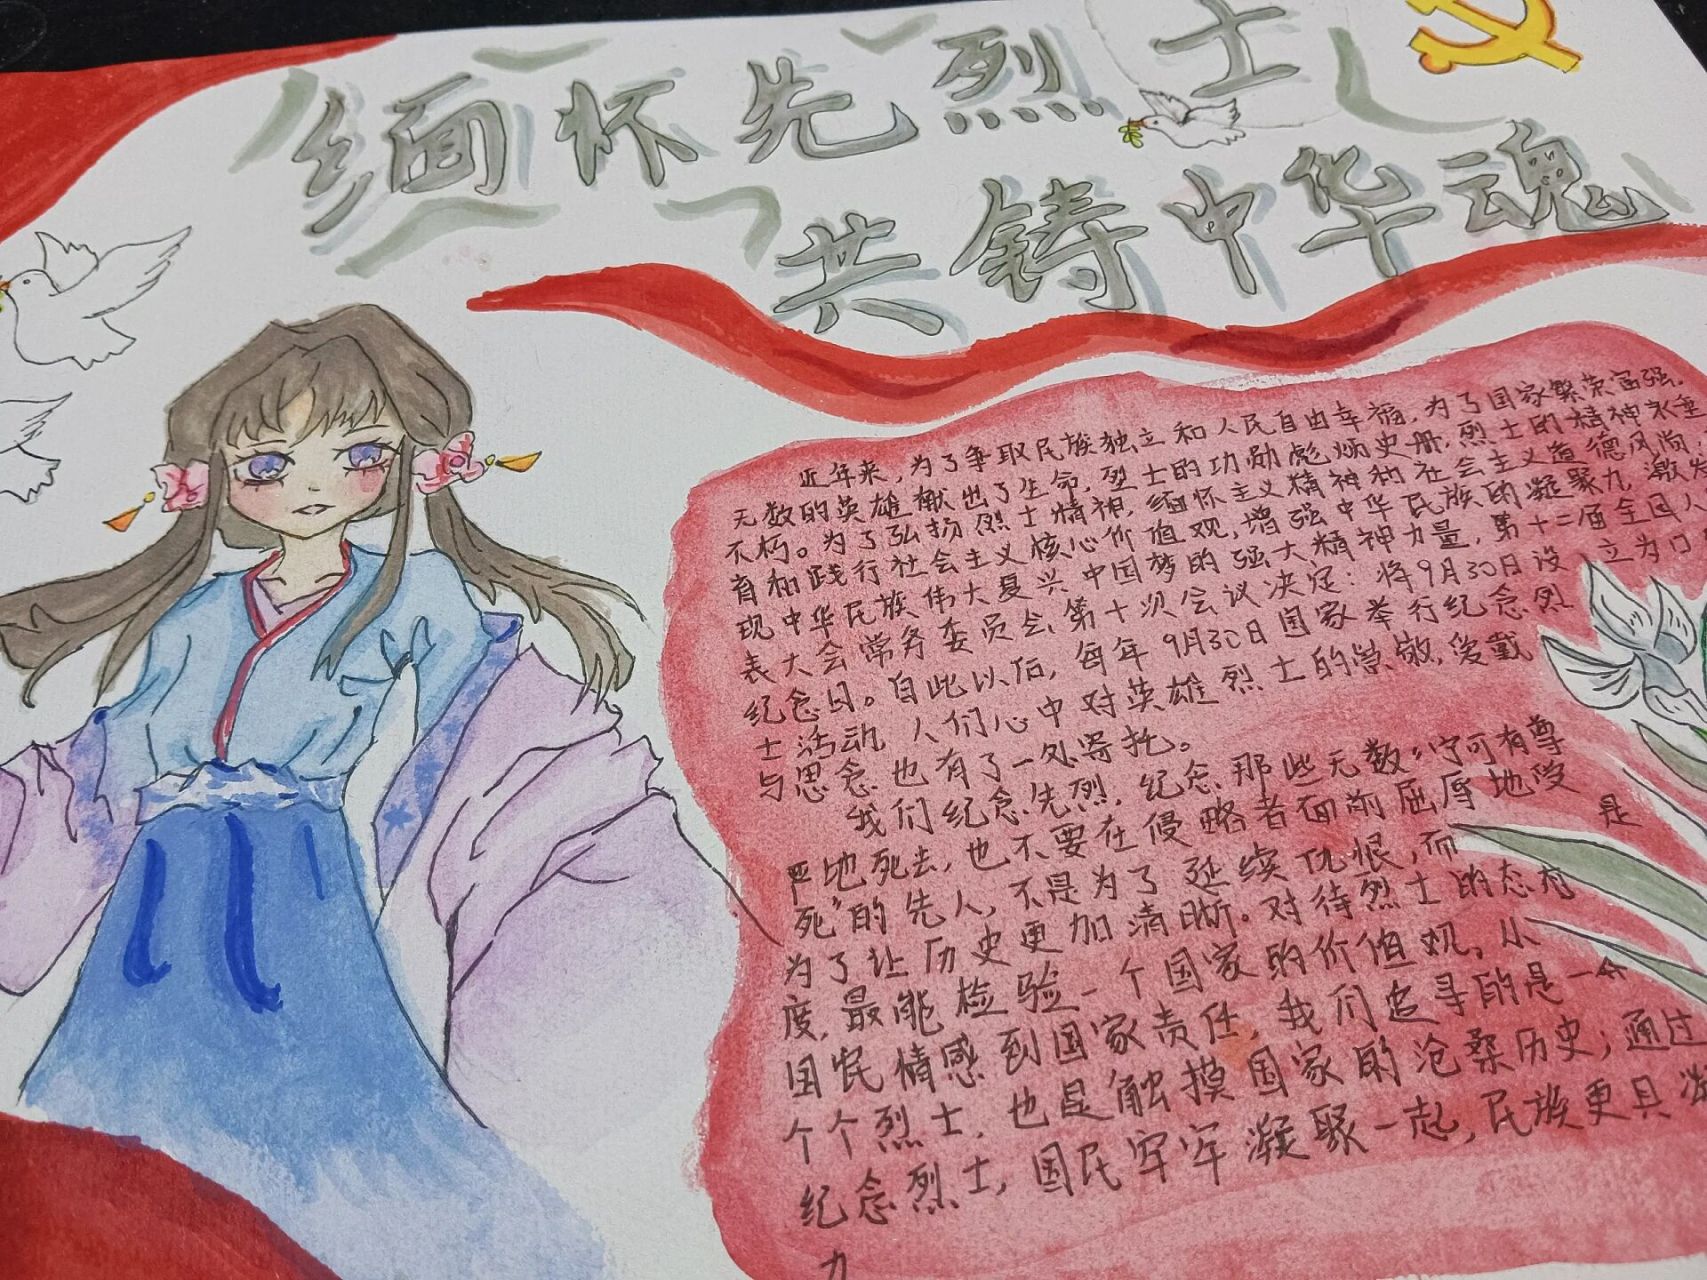 缅怀先烈士
共铸中华魂
近年来，为了争取民族独立和人民自由幸福，为了国家繁荣富强，
无数的英雄献出了生命，烈士的功勋彪炳史册，烈士的精神永垂
不朽。为了弘扬烈士精神，缅怀主义精神和社会主义道德风尚，
育和践行社会主义核心价值观，增强中华民族的凝聚九，激发
现中华民族伟大复兴中国梦的强大精神力量，第十二届全国人
表大会常务委员会，第十次会议决定：将9月30日设立为
纪念日。自此以后，每年9月30日国家举行纪念烈
士活动，人们心中对英雄烈士的崇敬，爱戴
与思念也有了一处寄托。
我们纪念先烈，纪念那些无数"宁可有尊
严地死去，也不要在侵略者面前屈辱地
死"的先人，不是为了延续仇恨，而是
为了让历史更加清晰。对待烈士的态
度，最能检验一个国家的价值观，从
国民情感到国家责任，我们追寻的是一个
个个烈士，也是触摸国家的沧桑历史；通过
纪念烈士，国民牢牢凝聚一起，民族更具凝
力